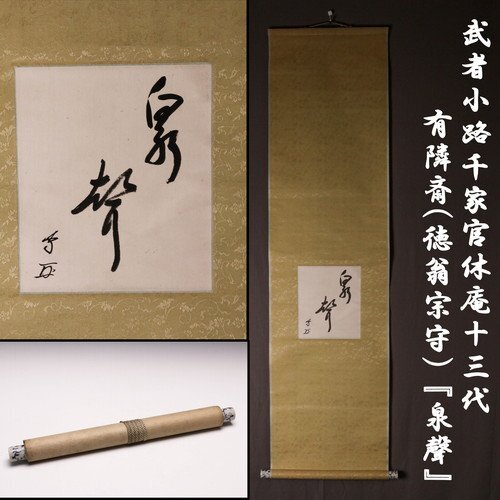 武者小路千家官休庵十三代
有隣斎(徳翁宗守)『泉聲』
泉
聲
泉
聲